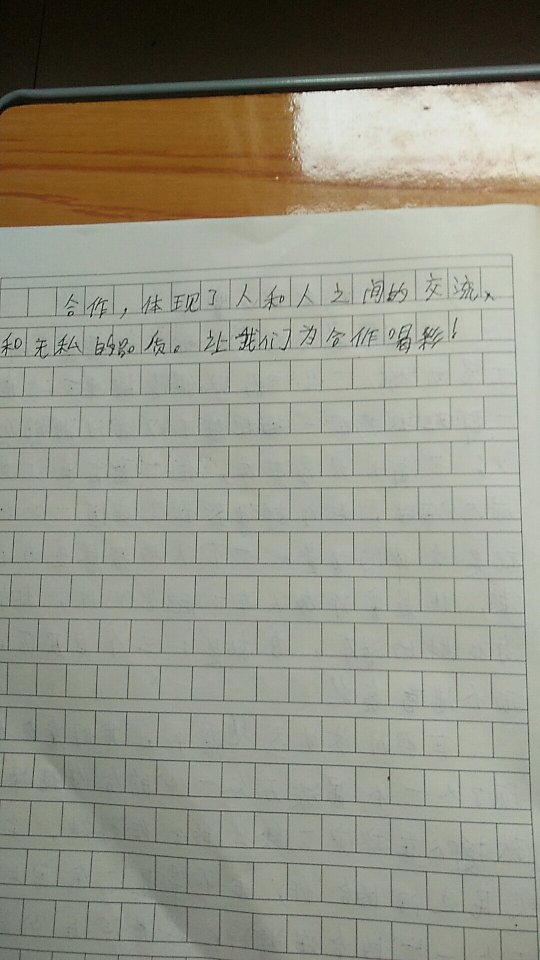 合作，体现了人和人之间的交流、
和无私的品质。让我们为合作喝彩！